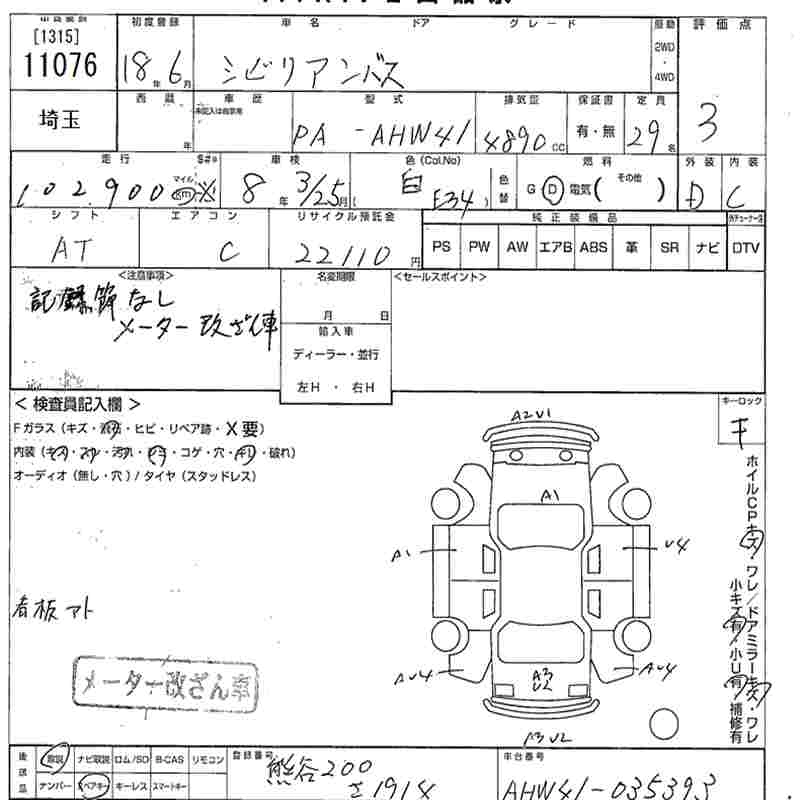 [1315]
11076
埼玉
初度登録
18年6月
車名 ドア グレード
シビリアンバス
駆動
2WD
・
4WD
評価点
3
西暦
年
車歴
未記入は自家用
型式
PA-AHW41
排気量
4890cc
保証書
有・無
定員
29名
走行
102,900
マイル
km
※
車検
8年3/25月
色(Col.No)
白
E34
色替
燃料
G D 電気( その他 )
外装
D
内装
C
シフト
AT
エアコン
C
リサイクル預託金
22110円
純正装備品
PS PW AW エアB ABS 革 SR ナビ
DTV
<注意事項>
記録簿なし
メーター改ざん車
名変期限
月 日
輸入車
ディーラー・並行
左H ・ 右H
<セールスポイント>
< 検査員記入欄 >
Fガラス(キズ・ ・ヒビ・リペア跡・X要)
内装(キズ・スレ・汚れ・シミ・コゲ・穴・キレ・破れ)
オーディオ(無し・穴)/タイヤ(スタッドレス)
キーロック
キ
A2V1
A1
A1
U4
AU4
A3
U2
AU4
A3 U2
看板アト
メーター改ざん車
ホイルCPキズ・ワレ/ドアミラーキズ・ワレ
小キズ有・小U有・補修有
後送品
取説 ナビ取説 ロム/SD B-CAS リモコン
ナンバー スペアキー キーレス スマートキー
登録番号
熊谷200
さ1914
車台番号
AHW41-035393